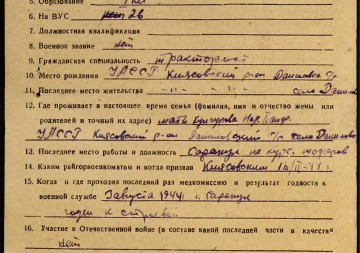 5. Образование
6. На ВУС № 26
7. Должностная квалификация
8. Военное звание нет
9. Гражданская специальность тракторист
10. Место рождения УАССР Киясовский р-он Данилово
11. Последнее место жительства село
12. Где проживает в настоящее время семья (фамилия, имя и отчество жены или
родителей и точный их адрес) мать
УАССР Киясовский р-он село Данилово
13. Последнее место работы и должность Сарапул на курс. шоферов
14. Каким райгорвоенкоматом и когда призван Киясовским
15. Когда и где проходил последний раз медкомиссию и результат годности к
военной службе 3 августа 1944 г. Сарапул
годен к строевой
16. Участие в Отечественной войне (в составе какой последней части в качестве
нет